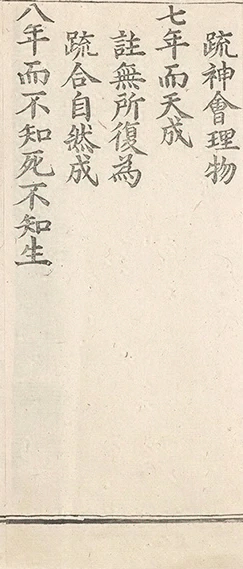 疏神會理物
七年而天成
註無所復為
疏合自然成
八年而不知死不知生